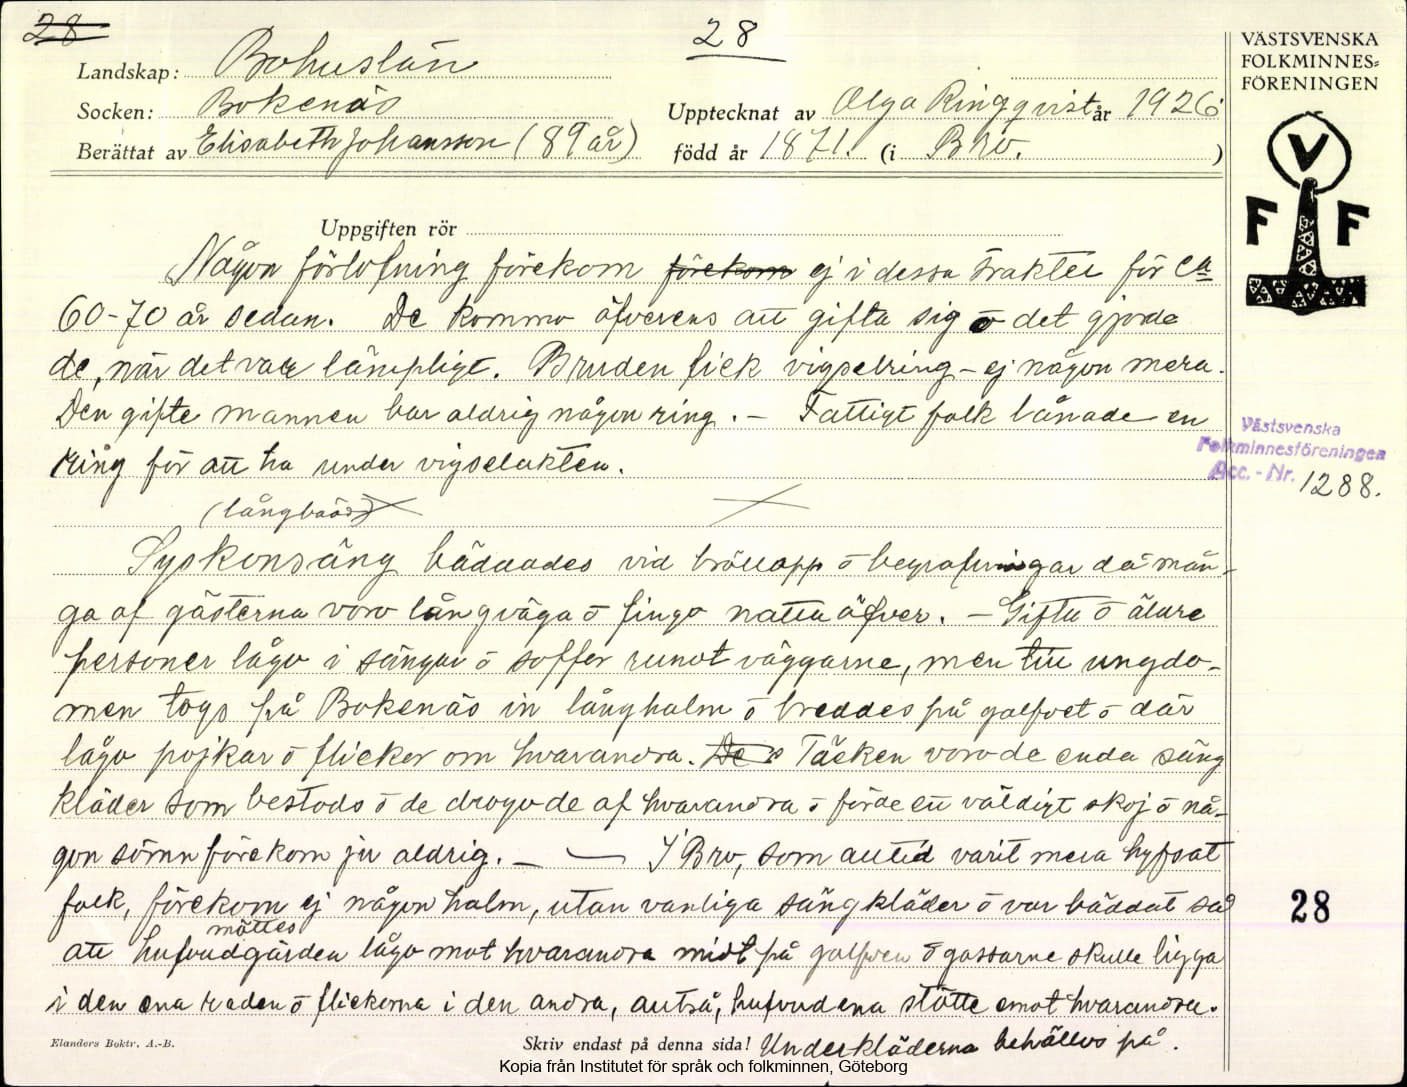 28
28
Landskap: Bohuslän
Socken: Bokenäs
Upptecknat av Olga Ringqvist år 1926.
Berättat av Elisabeth Johansson (89 år)
född år 1871. (i Bro.)
Uppgiften rör
Någon förlofning förekom förekom ej i dessa trakter för ca
60-70 år sedan. De kommo öfverens att gifta sig o det gjorde
de, när det var lämpligt. Bruden fick vigselring - ej någon mera.
Den gifte mannen bar aldrig någon ring. - Fattigt folk lånade en
ring för att ha under vigselakten.
(långbädd)
Syskonsäng bäddades vid bröllopp o begrafningar då mån-
ga af gästerna voro långväga o fingo natta öfver. - Gifta o äldre
personer lågo i sängar o soffor rundt väggarne, men till ungdo-
men togs på Bokenäs in långhalm o breddes på golfvet o där
lågo pojkar o flickor om hvarandra. De Täcken voro de enda säng
kläder som bestods o de drogo de af hvarandra o förde ett väldigt skoj o nå-
gon sömn förekom ju aldrig. - I Bro, som alltid varit mera hyfsat
folk, förekom ej någon halm, utan vanliga sängkläder o var bäddat så
möttes
att hufvudgärden lågo mot hvarandra midt på golfven o gossarne skulle ligga
i den ena raden o flickorna i den andra, alltså, hufvudena stötte emot hvarandra.
Underkläderna behöllos på.
Elanders Boktr. A.-B.
Skriv endast på denna sida!
Kopia från Institutet för språk och folkminnen, Göteborg
VÄSTSVENSKA
FOLKMINNES=
FÖRENINGEN
V
F F
Västsvenska
Folkminnesföreningen
Acc. - Nr. 1288.
28